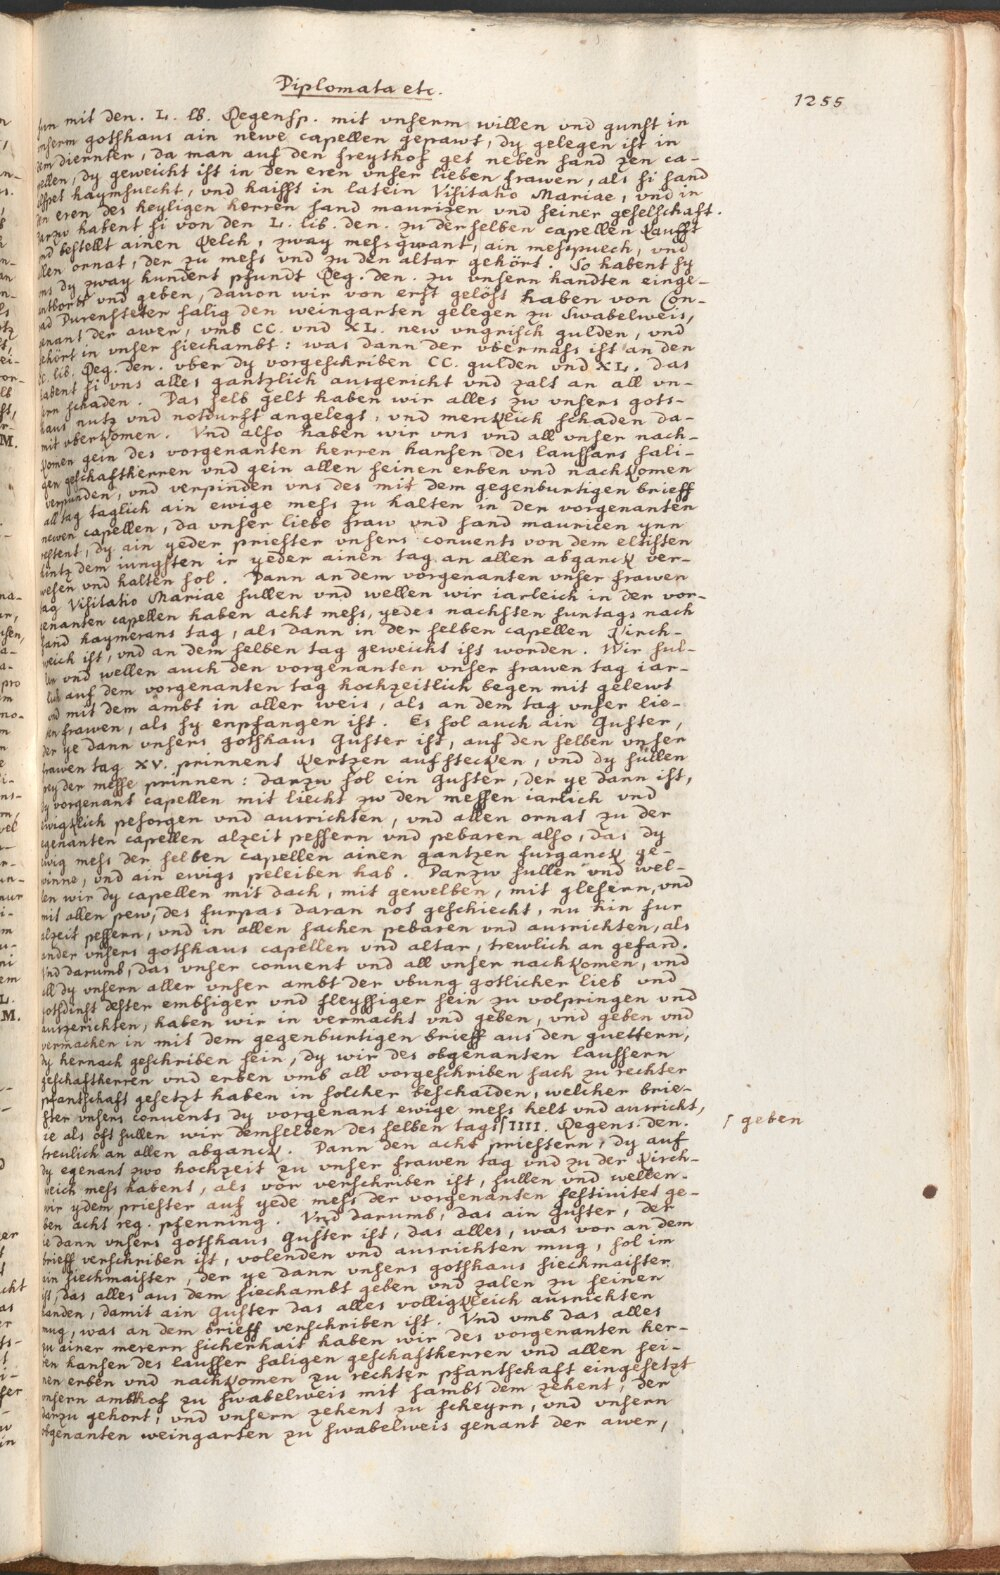 Diplomata etc.
1255
mit den. L. lb. Regensp. mit vnserm willen vnd gunst in
vnserm gotshaus ain newe capellen gepawt, dy gelegen ist in
dem diernter, da man auf den freythof get neben sand zen ca-
pellen, dy geweicht ist in den eren vnser lieben frawen, als si sand
haymsuecht, vnd haisst in latein Visitatio Mariae, vnd in
den eren des heyligen herren sand maurizen vnd seiner geselschaft.
Darzw habent si von den L. lib. den. zu derselben capellen kaufft
vnd bestellt ainen kelch, zway messgwant, ain messpuech, vnd
allen ornat, der zu mess vnd zu den altar gehört. So habent sy
vns dy zway hundert pfundt Reg. den. zu vnsern handten einge-
antbort vnd geben, dauon wir von erst gelöst haben von Con-
rad Durensteter sälig den weingarten gelegen zu Swabelweis,
genant der awer, vmb CC. vnd XL. new vngrisch gulden, vnd
gehört in vnser siechambt: was dann der vbermass ist an den
CC. lib. Reg. den. vber dy vorgeschriben CC. gulden vnd XL. das
habent si vns alles gantzlich ausgericht vnd zalt an all vn-
sern schaden. Das selb gelt haben wir alles zw vnsers gots-
haus nutz vnd notdurft angelegt, vnd merckleich schaden da-
mit vberkomen. Vnd also haben wir vns vnd all vnser nach-
komen gein des vorgenanten herren hansen des laussars sali-
gen geschaftherren vnd gein allen seinen erben vnd nachkomen
verpunden, vnd verpinden vns des mit dem gegenburtigen brieff
all tag taglich ain ewige mess zu halten in der vorgenanten
newen capellen, da vnser liebe fraw vnd sand mauricen ynn
restent, dy ain yeder priester vnsers conuents von dem eltisten
hintz dem iungsten ir yeder ainen tag an allen abganck ver-
wesen vnd halten sol. Dann an dem vorgenanten vnser frawen
tag Visitatio Mariae sullen vnd wellen wir iarleich in der vor-
genanten capellen haben acht mess, yedes nachsten suntags nach
sand haymerans tag, als dann in der selben capellen kirch-
weich ist, vnd an dem selben tag geweicht ist worden. Wir sul-
len vnd wellen auch den vorgenanten vnser frawen tag iar-
lich auf dem vorgenanten tag hochzeitlich begen mit gelewt
vnd mit dem ambt in aller weis, als an dem tag vnser lie-
ben frawen, als sy enpfangen ist. Es sol auch ain Guster,
der ye dann vnsers gotshaus Guster ist, auf den selben vnser
frawen tag XV. prinnent kertzen aufstecken, vnd dy süllen
pey der messe prinnen: darzw sol ein Guster, der ye dann ist,
dy vorgenant capellen mit liecht zw den messen iarlich vnd
ewigklich pesorgen vnd ausrichten, vnd allen ornat zu der
egenanten capellen alzeit pessern vnd pebaren also, das dy
ewig mess der selben capellen ainen gantzen furganck ge-
winne, vnd ain ewigs peleiben hab. Darzw sullen vnd wel-
len wir dy capellen mit dach, mit gewelben, mit glesern, vnd
mit allen pew, des furpas daran not geschiecht, nu hin fur
alzeit pessern, vnd in allen sachen pebaren vnd ausrichten, als
ander vnsers gotshaus capellen vnd altar, trewlich an geferd.
Vnd darumb, das vnser conuent vnd all vnser nachkomen, vnd
all dy vnsern aller vnser ambt der vbung gotlicher lieb vnd
gotsdinst dester embsiger vnd fleyssiger sein zu volpringen vnd
auszerichten, haben wir in vermacht vnd geben, vnd geben vnd
vermachen in mit dem gegenburtigen brieff aus den guettern,
dy hernach geschriben sein, dy wir des obgenanten laussern
geschaftherren vnd erben vmb all vorgeschriben sach zu rechter
pfantschaft gesetzt haben in solcher beschaiden, welcher brie-
ster vnsers conuents dy vorgenant ewige mess helt vnd ausricht,
ie als oft sullen wir demselben des selben tags ⌠ IIII. Regens. den.
⌠ geben
treulich an allen abganck. Dann den acht priestern, dy auf
dy egenant zwo hochzeit zu vnser frawen tag vnd zu der kirch-
weich mess habent, als vor verschriben ist, sullen vnd wellen
wir ydem priester auf yede mess der vorgenanten festiuitet ge-
ben acht reg. pfenning. Vnd darumb, das ain Guster, der
ie dann vnsers gotshaus Guster ist, das alles, was vor an dem
brieff verschriben ist, volenden vnd ausrichten mug, sol im
ain siechmaister, der ye dann vnsers gotshaus siechmaister
ist, das alles aus dem siechambt geben vnd zalen zu seinen
handen, damit ain Guster das alles volligkleich ausrichten
mug, was an dem brieff verschriben ist. Vnd vmb das alles
zu ainer merern sicherhait haben wir des vorgenanten her-
ren hansen des lausser saligen geschaftherren vnd allen sei-
nen erben vnd nachkomen zu rechter pfantschaft eingesetzt
vnsern ambthof zu swabelweis mit sambt dem zehent, der
darzu gehort, vnd vnsern zehent zu scheyrn, vnd vnsern
obgenanten weingarten zu swabelweis genant der awer,